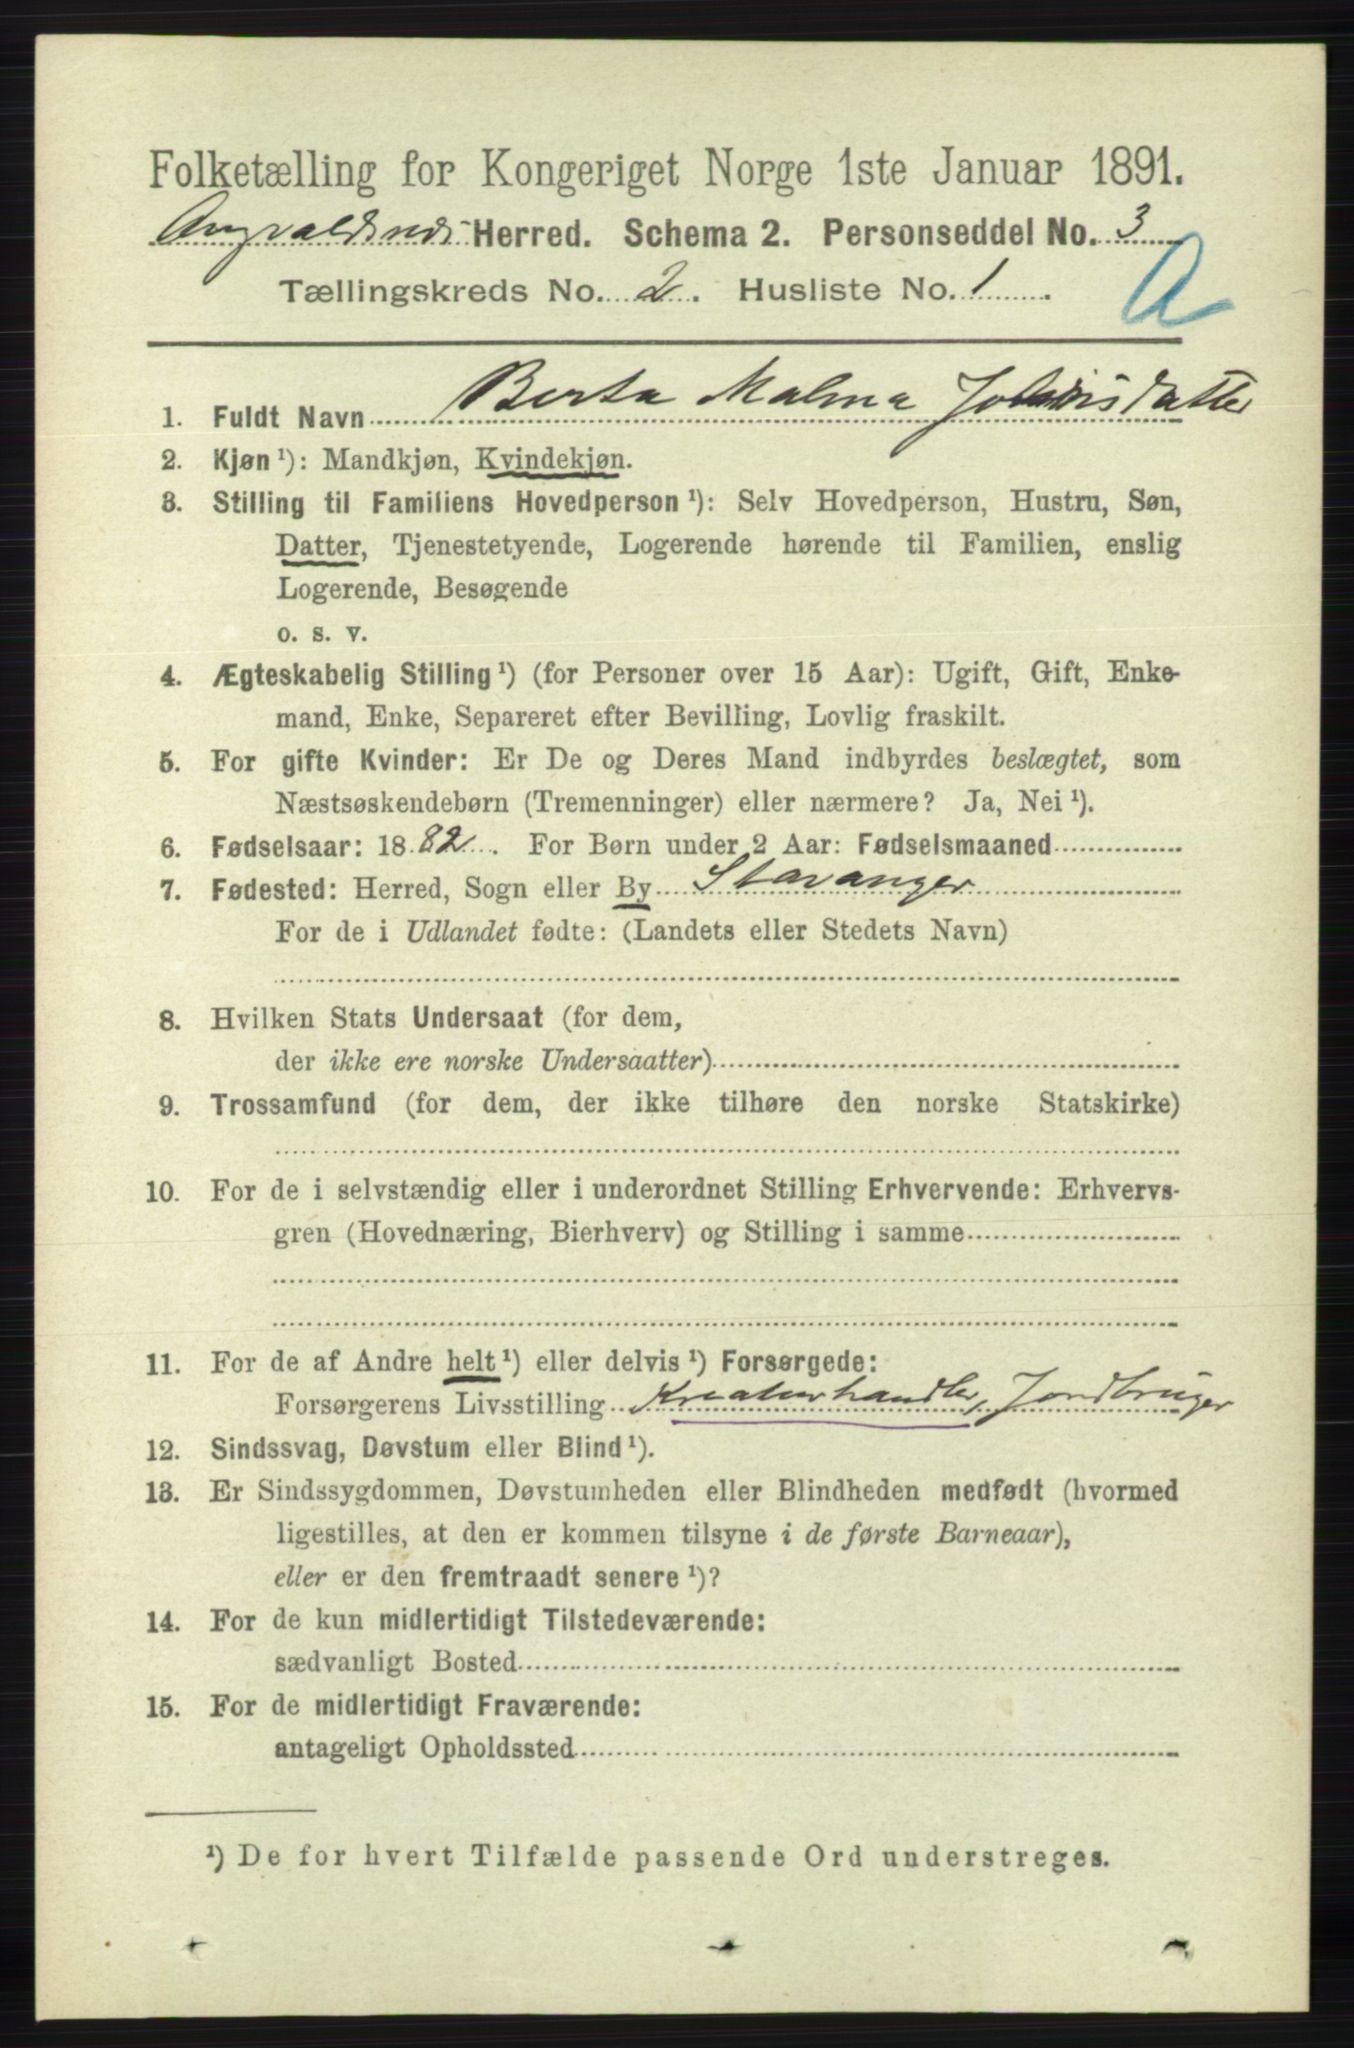 Folketælling for Kongeriget Norge 1ste Januar 1891.
Herred. Schema 2. Personseddel No. 3
A
Tællingskreds No. 2. Husliste No. 1.
1. Fuldt Navn Berta Malma
2. Kjøn ¹): Mandkjøn, Kvindekjøn.
3. Stilling til Familiens Hovedperson ¹): Selv Hovedperson, Hustru, Søn,
Datter, Tjenestetyende, Logerende hørende til Familien, enslig
Logerende, Besøgende
o. s. v.
4. Ægteskabelig Stilling ¹) (for Personer over 15 Aar): Ugift, Gift, Enke-
mand, Enke, Separeret efter Bevilling, Lovlig fraskilt.
5. For gifte Kvinder: Er De og Deres Mand indbyrdes beslægtet, som
Næstsøskendebørn (Tremenninger) eller nærmere? Ja, Nei ¹).
6. Fødselsaar: 1882. For Børn under 2 Aar: Fødselsmaaned
7. Fødested: Herred, Sogn eller By Stavanger
For de i Udlandet fødte: (Landets eller Stedets Navn)
8. Hvilken Stats Undersaat (for dem,
der ikke ere norske Undersaatter)
9. Trossamfund (for dem, der ikke tilhøre den norske Statskirke)
10. For de i selvstændig eller i underordnet Stilling Erhvervende: Erhvervs-
gren (Hovednæring, Bierhverv) og Stilling i samme
11. For de af Andre helt ¹) eller delvis ¹) Forsørgede:
Forsørgerens Livsstilling Kreaturhandler, Jordbruger
12. Sindssvag, Døvstum eller Blind ¹).
13. Er Sindssygdommen, Døvstumheden eller Blindheden medfødt (hvormed
ligestilles, at den er kommen tilsyne i de første Barneaar),
eller er den fremtraadt senere ¹)?
14. For de kun midlertidigt Tilstedeværende:
sædvanligt Bosted
15. For de midlertidigt Fraværende:
antageligt Opholdssted
¹) De for hvert Tilfælde passende Ord understreges.